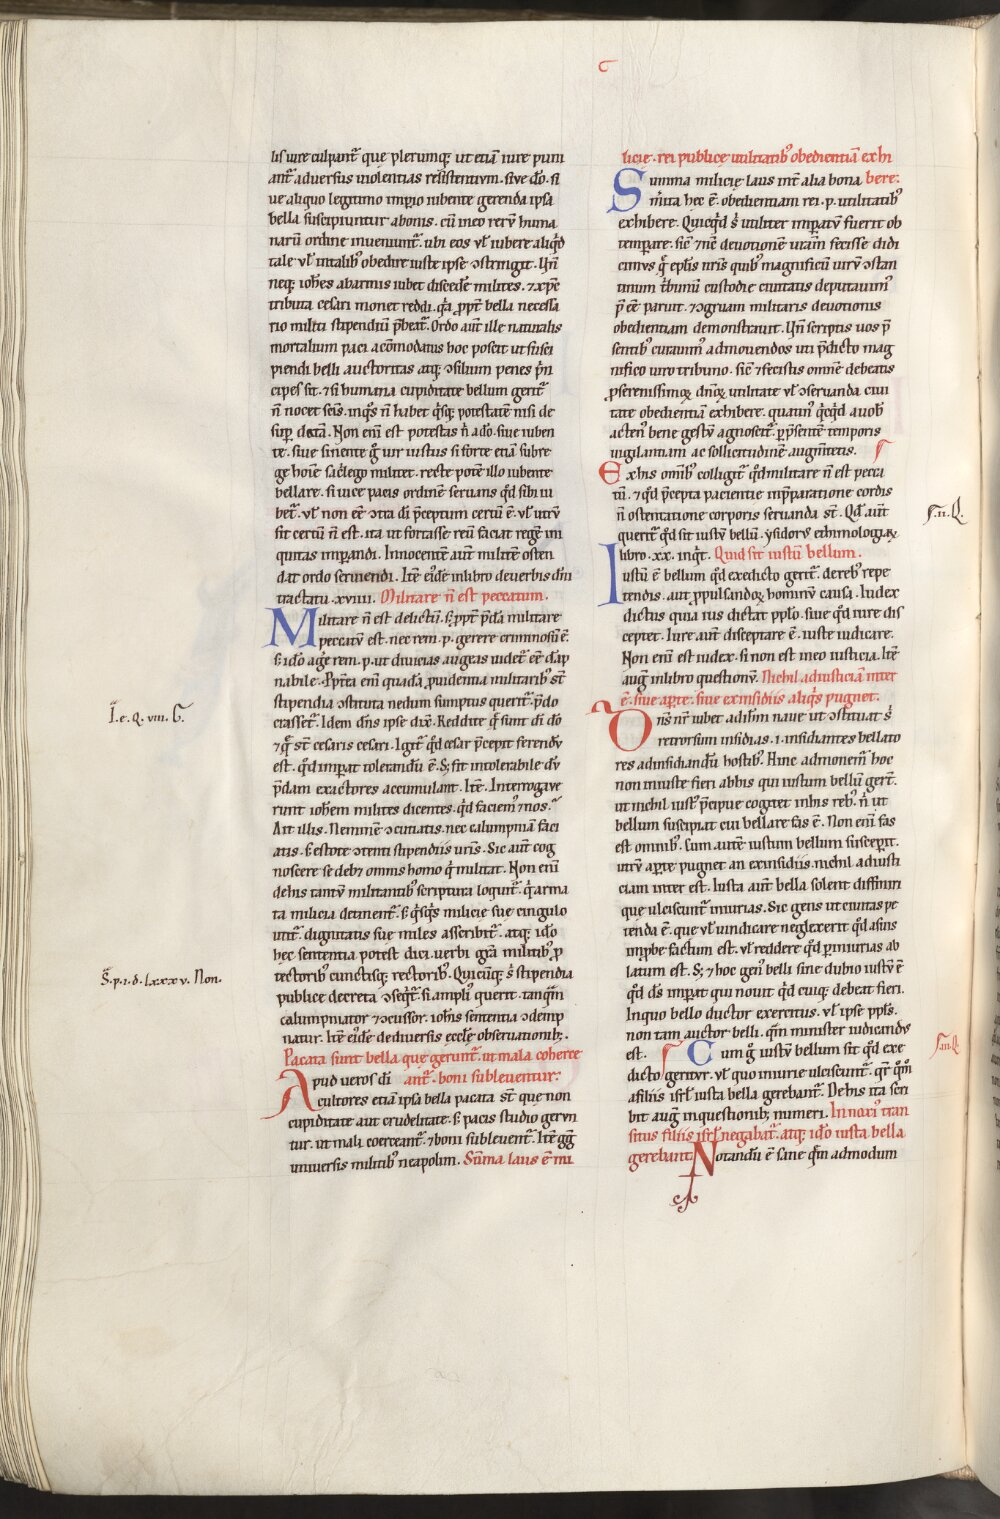 c
lis iure culpantᷓ que plerumqꝫ ut etiā iure puni
antᷓ aduersus uiolentias resistentium. siue dō. si
ue aliquo legitimo imꝑio iubente gerenda ipsa
bella suscipiuntur abonis. cū ineo rerū huma
narū ordine inueniuntᷓ. ubi eos ul̄ iubere aliqͥd
tale ul̄ intalibꝰ obedire iuste ipse ꝯstringit. Un̄
neqꝫ ioh̄es abarmis iubet discedē milites. ⁊xp̄c
tributa cesari monet reddi. qͥa ꝓpt̄ bella necessa
rio militi stipendiū p̄beatᷓ. Ordo aut̄ ille naturalis
mortalium paci acōmodatus hoc poscit ut susci
piendi belli auctoritas atqꝫ ꝯsilium penes pͥn
cipes sit. ⁊ si humana cupiditate bellum geritᷓ
n̄ nocet sc̄is. inqͦs n̄ habet qͥsqꝫ potestatē nisi de
suꝑ datā. Non eni est potestas nͥ adō. siue iuben
te. siue sinente ḡ uir iustus si forte etiā subre
ge hoīe sacͥlego militet. recte potē illo iubente
bellare. si uice pacis ordinē seruans qd̄ sibi iu
betᷓ. ul̄ non eē ꝯtra di p̄ceptum certū ē. ul̄ utrū
sit certū n̄ est. ita ut fortasse reū faciat regē ini
quitas imꝑandi. Innocentē aut̄ militē osten
dat ordo seruiendi. Itē eiꝰdē inlibro deuerbis dn̄i
tractatu .xviiii. Militare n̄ est peccatum.
Militare n̄ est delictū. sꝫ ꝓpt̄ p̄dā militare
peccatū est. nec rem .p. gerere criminosū ē.
s; idō agē rem .p. ut diuicias augeas uidetᷓ eē dāp
nabile. Ppt̄ea eni quadā ꝓuidentia militaribꝰ st̄
stipendia ꝯstituta nedum sumptus queritᷓ. p̄do
crassetᷓ. Idem dn̄s ipse dix̄. Reddite qͤ sunt di dō
⁊ qͤ st̄ cesaris cesari. Igitᷓ qd̄ cesar p̄cepit ferendū
est. qd̄ imꝑat tolerandū ē. Sꝫ fit intolerabile dū
p̄dam exactores accumulant. Itē. Interrogaue
runt ioh̄em milites dicentes. qͥd faciemꝰ ⁊ nos.
Ait illis. Neminē ꝯcutiatis. nec calumpniā faci
atis. s; estote ꝯtenti stipendiis ur̄is. Sic aut̄ cog
noscere se debꝫ omnis homo qͥ militat. Non eni
dehis tantū militantibꝰ scriptura loquitᷓ. qͥ arma
ta milicia detinentᷓ. s; qͥsqͥs milicie sue cingulo
utitᷓ. dignitatis sue miles asscribitᷓ. atqꝫ idō
hec sententia potest dici. uerbi grā militibꝰ ꝓ
tectoribꝰ cunctisqꝫ rectoribꝰ. Quicūqꝫ ḡ stipendia
publice decreta ꝯseqͥtᷓ. si ampliꝰ querit. tanqͣm
calumpniator ⁊ ꝯcussor. ioh̄is sententia ꝯdemp
natur. Itē eiꝰdē dediuersis eccl̄ę obseruationibꝫ.
Pacata sunt bella que geruntᷓ. ut mala coherce
Apud ueros di antᷓ. boni subleuentur.
cultores etiā ipsa bella pacata st̄ que non
cupiditate aut crudelitate. s; pacis studio gerun
tur. ut mali coerceantᷓ. ⁊ boni subleuentᷓ. Itē ḡg̅
uniuersis militibꝰ neapolim. Sūma laus ē mi
licie. rei publicę utilitatibꝰ obedientiā exhi
Summa milicię laus int̄ alia bona bere.
m̄ita hec ē. obedientiam rei .p. utilitatibꝰ
exhibere. Quicqͥd s; utiliter imꝑatū fuerit ob
temperare. sic̄ ⁊ nc̄ deuotionē ur̄am fecisse didi
cimus qͥ epl̄is nr̄is quibꝰ magnificū uirū ꝯstan
tinum tͥbunū custodie ciuitatis deputauimꝰ
p̄ eē paruit. ⁊ ꝯgruam militaris deuotionis
obedientiam demonstrauit. Un̄ scriptis uos p̄
sentibꝰ curauimꝰ admouendos uti p̄dicto mag
nifico uiro tribuno. sic̄ ⁊ fecistis omnē debeatis
ꝓserenissimoꝝ dn̄oꝝ utilitate ul̄ ꝯseruanda ciui
tate obedientiā exhibere. quatinꝰ qͥcqͥd auob̄
actenꝰ bene gestū agnoscitᷓ. ꝑp̄sentē temporis
uigilantiam ac sollicitudinē augmtetis.
Exhis omibꝰ colligitᷓ. qd̄ militare n̄ est pecca
tū. ⁊ qd̄ p̄cepta pacientie inp̄paratione cordis
n̄ ostentatione corporis seruanda st̄. Qd̄ aut̄
queritᷓ qd̄ sit iustū bellū. ysidorꝰ ethimologiaꝝ
libro .xx. inqͥt. Quid sit iustū bellum.
Iustū ē bellum qd̄ exedicto geritᷓ. derebꝰ repe
tendis. aut ꝓpulsandoꝝ hominū causa. Iudex
dictus quia ius dictat pplo. siue qd̄ iure dis
ceptet. Iure aut̄ disceptare ē. iuste iudicare.
Non eni est iudex. si non est ineo iusticia. Itē
aug̅ inlibro questionū. Nichil adiusticiam inter
ē. siue aꝑte. siue exinsidiis aliqͥs pugnet.
Dn̄s nr̄ iubet adihm̄ naue ut ꝯstituat s;
retrorsum insidias .i. insidiantes bellato
res adinsidiandū hostibꝰ. Hinc admonemᷓ hoc
non iniuste fieri abhis qui iustum bellū ger̄t.
ut nichil iustꝰ p̄cipue cogitet inhis rebꝰ. nͥ ut
bellum suscipiat cui bellare fas ē. Non eni fas
est omnibꝰ. Cum autē iustum bellum susceperit.
utrū aꝑte pugnet an exinsidiis. nichil adiusti
ciam inter est. Iusta aut̄ bella solent diffiniri
que ulciscuntᷓ iniurias. Sic gens ut ciuitas pe
tenda ē. que ul̄ uindicare neglexerit qd̄ asuis
improbe factum est. ul̄ reddere qd̄ ꝑiniurias ab
latum est. Sꝫ ⁊ hoc genꝰ belli sine dubio iustū ē
qd̄ ds̄ imꝑat qui nouit qd̄ cuiqꝫ debeat fieri.
Inquo bello ductor exercitus. ul̄ ipse ppl̄s.
non tam auctor belli. qͣm minister iudicandus
est. Cum ḡ iustū bellum sit qd̄ exe
dicto geritur. ul̄ quo iniurie ulciscuntᷓ. qͥrᷓ qͦm̄
afiliis isrl̄ iusta bella gerebantᷓ. Dehis ita scri
bit aug̅ inquestionibꝫ numeri. Innoxiꝰ tran
situs filiis isrl̄ negabatᷓ. atqꝫ idō iusta bella
gerebant Notandū ē sane qͣm admodum
I. e. q. viii. G.
S. p. i. d. lxxxv. Non.
S. ii. Q.
S. iii. Q.